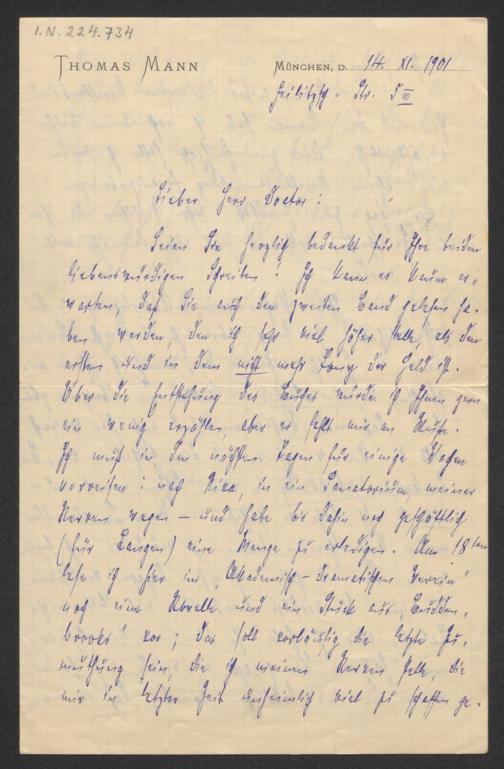 I.N. 224.734
THOMAS MANN
MÜNCHEN, D. 14. XI. 1901
Feilitzsch-Str. 5 III
Lieber Herr Doctor:
Seien Sie herzlich bedankt für Ihre beiden
liebenswürdigen Schreiben! Ich kann es kaum er-
warten, daß Sie auch den zweiten Band gelesen ha-
ben werden, den ich sehr viel höher stelle, als den
ersten und in dem nicht mehr Tony der Held ist.
Über die Entstehung des Buches würde ich Ihnen gern
ein wenig erzählen, aber es fehlt mir an Muße.
Ich muß in den nächsten Tagen für einige Wochen
verreisen: nach Riva, in ein Sanatorium, meiner
Nerven wegen – und habe bis dahin noch geschäftlich
(für Langen) eine Menge zu erledigen. Am 18ten
lese ich hier im "Akademisch-Dramatischen Verein"
noch eine Novelle und ein Stück aus "Budden-
brooks" vor; das soll vorläufig die letzte Zu-
muthung sein, die ich meinen Nerven stelle, die
mir in letzter Zeit unheimlich viel zu schaffen ge-